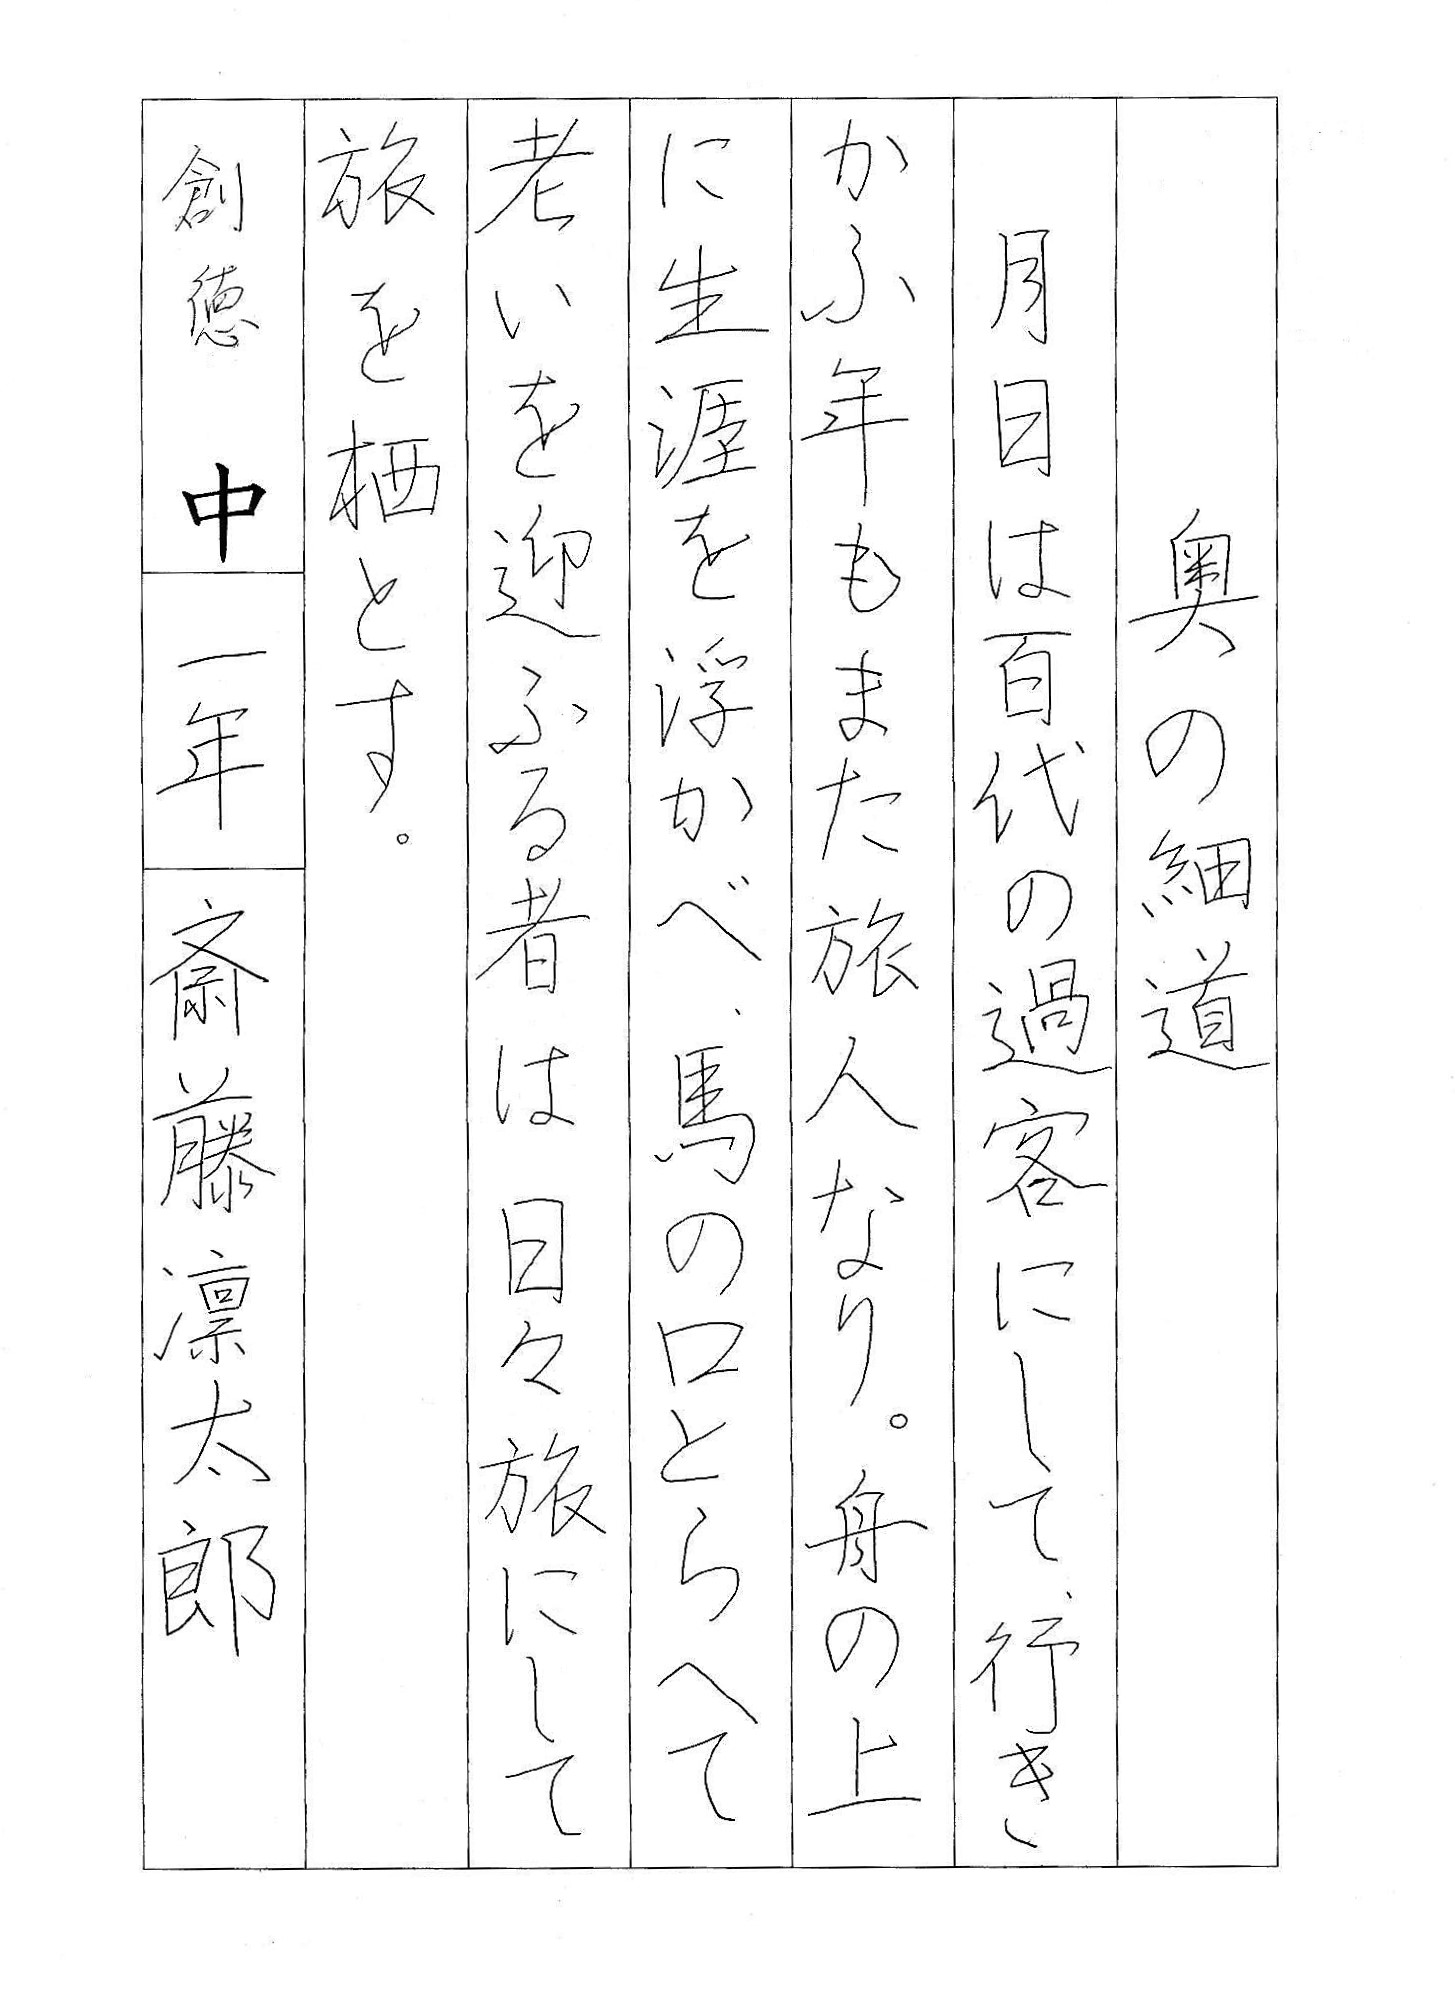 奥の細道
月日は百代の過客にして、行き
かふ年もまた旅人なり。舟の上
に生涯を浮かべ、馬の口とらへて
老いを迎ふる者は日々旅にして
旅を栖とす。
創徳 中 一年 齋藤凛太郎